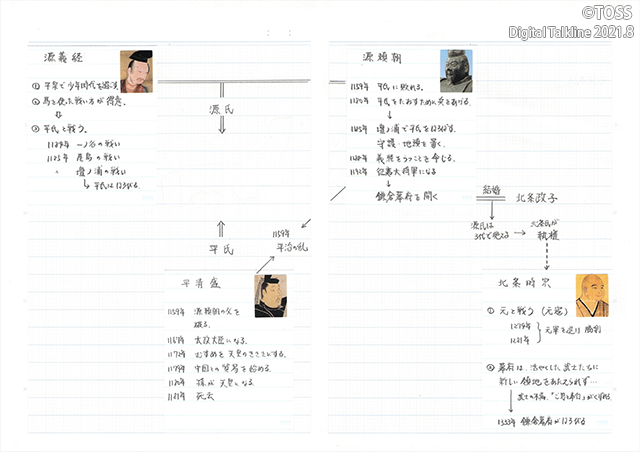 ©TOSS
Digital Talkline 2021.8
源義経
① 平泉で少年時代を過ごす
② 馬を使った戦い方が得意。
③ 平氏と戦う。
一ノ谷の戦い
1185年 屋島の戦い
〃 壇ノ浦の戦い
平氏はほろびる
源氏
平氏
1159年
平治の乱
平清盛
1159年 源頼朝の父を
破る。
1167年 太政大臣になる。
むすめを天皇のきさきにする。
中国との貿易を始める。
1180年 孫が天皇になる。
1181年 死去
源頼朝
1159年 平氏に敗れる。
1180年 平氏をたおすために兵をあげる。
1185年 壇ノ浦で平氏をほろぼす。
守護・地頭を置く。
義経をうつことを命じる。
1192年 征夷大将軍になる
鎌倉幕府を開く
結婚
北条政子
源氏は
3代で絶える
北条氏が
執権
北条時宗
① 元と戦う(元寇)
1274年
1281年
元軍を退け勝利
② 幕府は、活やくした武士たちに
新しい領地をあたえられず…
武士の不満。「ご恩と奉公」がくずれる
1333年 鎌倉幕府がほろびる